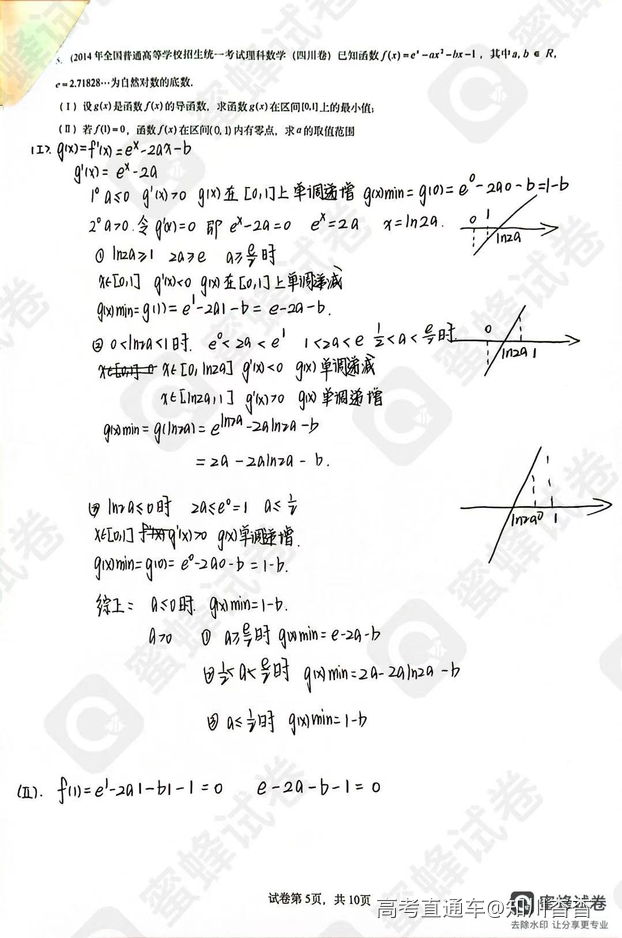 5. (2014年全国普通高等学校招生统一考试理科数学(四川卷)已知函数 f(x)=eˣ-ax²-bx-1,其中a,b∈R,
e=2.71828⋯为自然对数的底数.
(Ⅰ)设g(x)是函数f(x)的导函数,求函数g(x)在区间[0,1]上的最小值;
(Ⅱ)若f(1)=0,函数f(x)在区间(0,1)内有零点,求a的取值范围
(Ⅰ). g(x)=f'(x)=eˣ-2ax-b
g'(x)= eˣ-2a
1° a≤0 g'(x)>0 g(x)在[0,1]上单调递增 g(x)min=g(0)=e⁰-2a0-b=1-b
2° a>0.令g'(x)=0 即 eˣ-2a=0 eˣ=2a x=ln2a.
0 1
ln2a
① ln2a≥1 2a≥e a≥e/2时
x∈[0,1] g'(x)<0 g(x)在[0,1]上单调递减
g(x)min=g(1)=e¹-2a1-b=e-2a-b.
② 0<ln2a<1时. e⁰<2a<e¹ 1<2a<e 1/2<a<e/2时.
0
ln2a 1
x∈[0,ln2a] g'(x)<0 g(x)单调递减
x∈[ln2a,1] g'(x)>0 g(x)单调递增
g(x)min=g(ln2a)=e^(ln2a)-2aln2a-b
=2a-2aln2a-b.
③ ln2a≤0时 2a≤e⁰=1 a≤1/2
ln2a 0 1
x∈[0,1] g'(x)>0 g(x)单调递增.
g(x)min=g(0)=e⁰-2a0-b=1-b.
综上: a≤0时. g(x)min=1-b.
a>0 ① a≥e/2时 g(x)min=e-2a-b
② 1/2<a<e/2时 g(x)min=2a-2aln2a-b
③ a≤1/2时 g(x)min=1-b
(Ⅱ). f(1)=e¹-2a1-b1-1=0 e-2a-b-1=0
试卷第5页,共10页
高考直通车@知乎
蜜蜂试卷
去除水印 让分享更专业